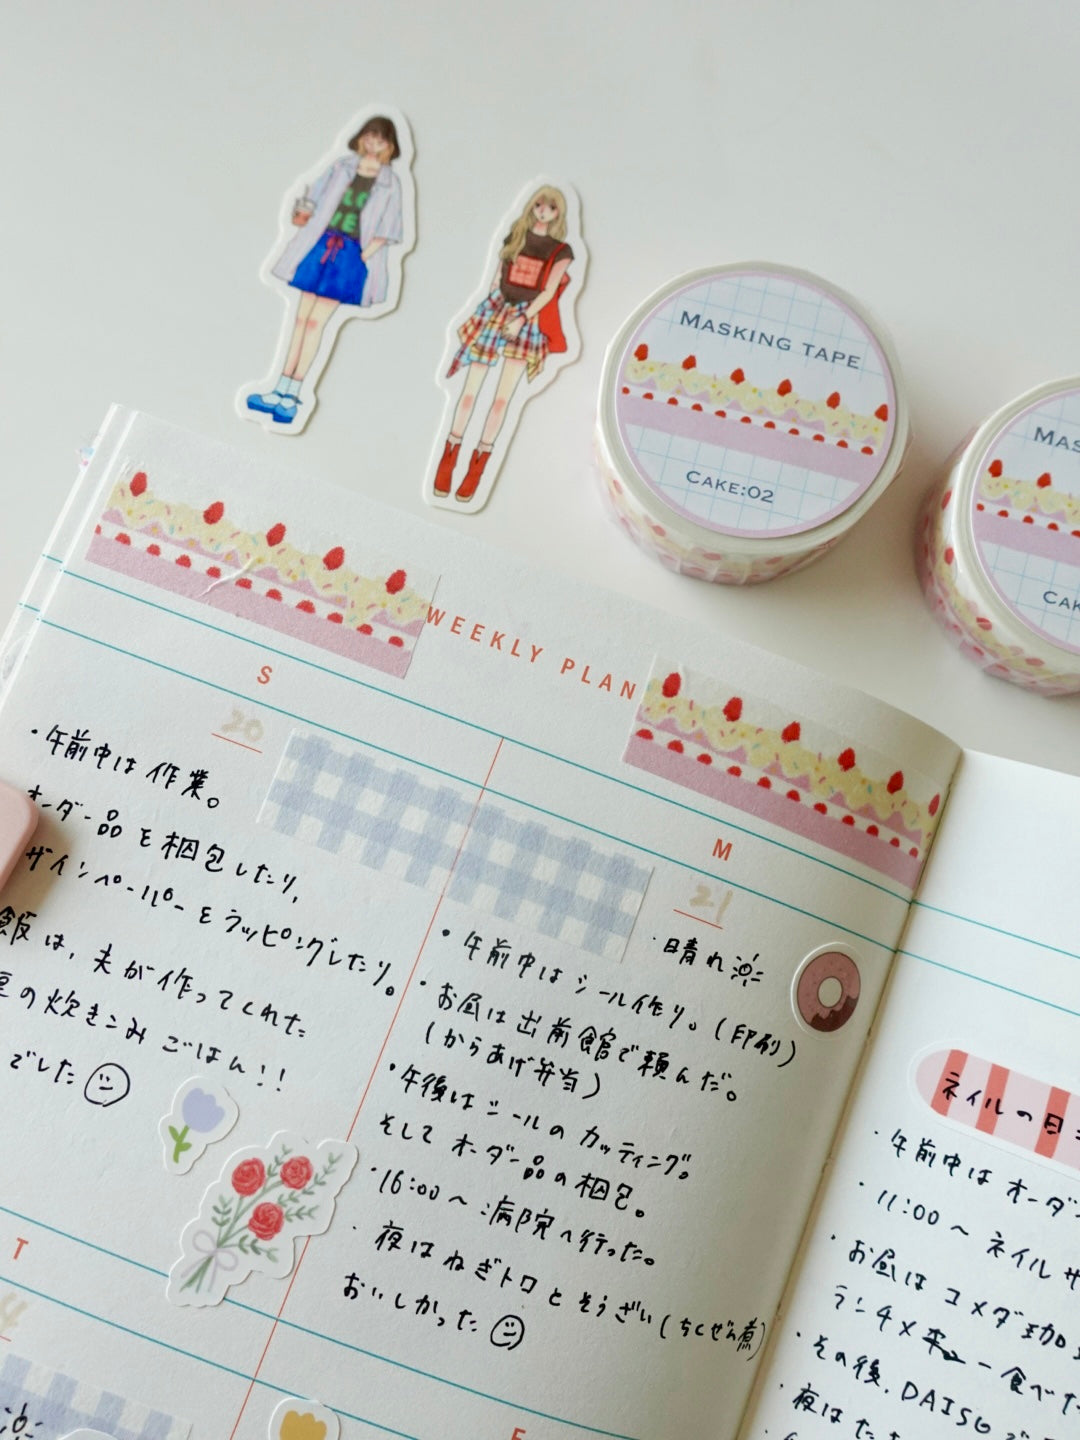 LO
VE
MASKING TAPE
CAKE:02
MAS
CA
WEEKLY PLAN
S
20
・午前中は作業。
オーダー品を梱包したり、
ザインペーパーをラッピングしたり。
飯は、夫が作ってくれた
の炊きこみごはん!!
でした
M
21
・日晴れ
・午前中はシール作り。(印刷)
・お昼は出前館で頼んだ。
(からあげ弁当)
・午後はシールのカッティング。
そしてオーダー品の梱包。
・16:00〜病院へ行った。
・夜はねぎトロとそうざい(ちくぜん煮)
おいしかった
ネイルの日
・午前中はオーダ
・11:00〜ネイルサ
・お昼はコメダ珈
ランチ
食べた
・その後、DAISO
・夜はた
T
4